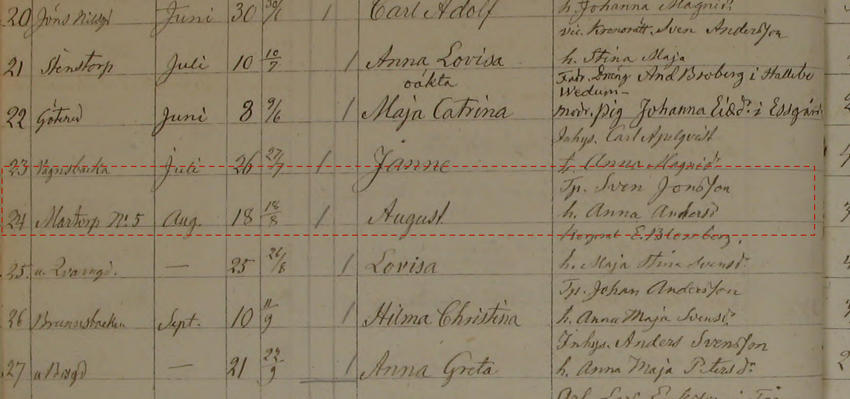 20 Juni 30 30/6 1 Carl Adolf h. Johanna Magnid:
vic. Kronorätt. Sven Andersson
21 Stenstorp Juli 10 10/7 1 Anna Lovisa h. Stina Maja
oäkta Fad. Dräng And Broberg i Hallebo
Wedum
22 Götened Juni 8 9/6 1 Maja Catrina modr. pig Johanna
Inhys. Carl
23 Vagnsbacka Juli 26 27/7 1 Janne h. Anna Magnid:
Tp. Sven Jonsson
24 Martorp No. 5 Aug. 18 18/8 1 August h. Anna Andersd
E. Blomberg.
25 — 25 26/8 1 Lovisa h. Maja Stina Svensd:
Tp. Johan Andersson
26 Brunnsbacken Sept. 10 11/9 1 Hilma Christina h. Anna Maja Svensd:
Inhys. Anders Svensson
27 — 21 22/9 1 Anna Greta h. Anna Maja Petersd: